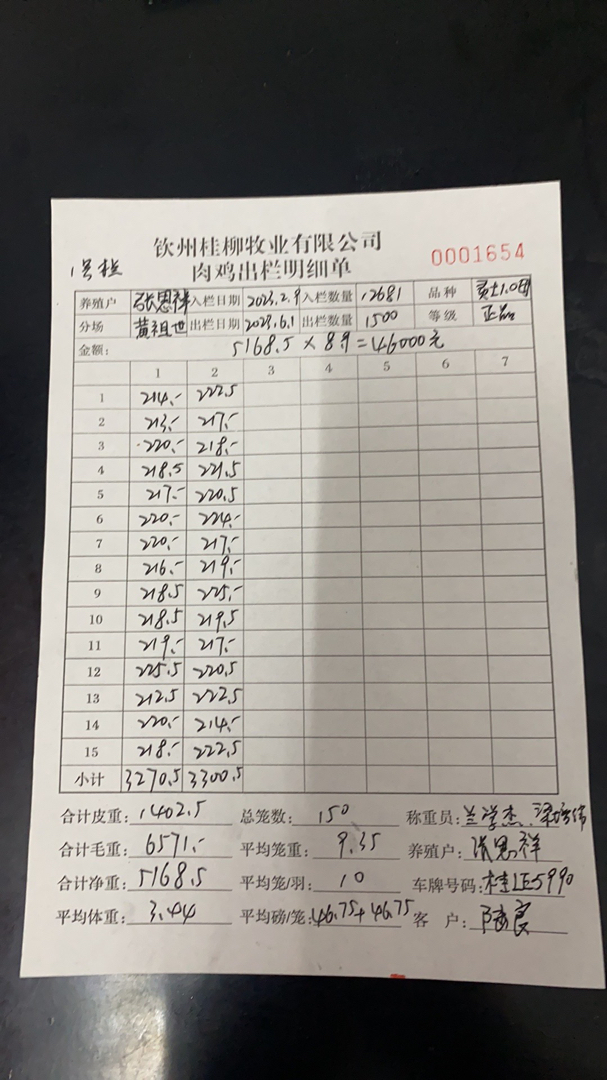 钦州桂柳牧业有限公司
1号栏 肉鸡出栏明细单 0001654
养殖户 张恩祥 入栏日期 2023.2.9 入栏数量 12681 品种
分场 黄祖世 出栏日期 2023.6.1 出栏数量 1500 等级 正品
金额: 5168.5 × 8.9 = 46000元
1 2 3 4 5 6 7
1 214.- 222.5
2 213.- 217.-
3 220.- 218.-
4 218.5 221.5
5 217.- 220.5
6 220.- 224.-
7 220.- 217.-
8 216.- 219.-
9 218.5 225.-
10 218.5 219.5
11 219.- 217.-
12 225.5 220.5
13 212.5 222.5
14 220.- 214.-
15 218.- 222.5
小计 3270.5 3300.5
合计皮重: 1402.5 总笼数: 150 称重员: 兰学杰.
合计毛重: 6571.- 平均笼重: 9.35 养殖户: 张恩祥
合计净重: 5168.5 平均笼/羽: 10 车牌号码: 桂LE5990
平均体重: 3.44 平均磅/笼: 46.75+46.75 客 户: